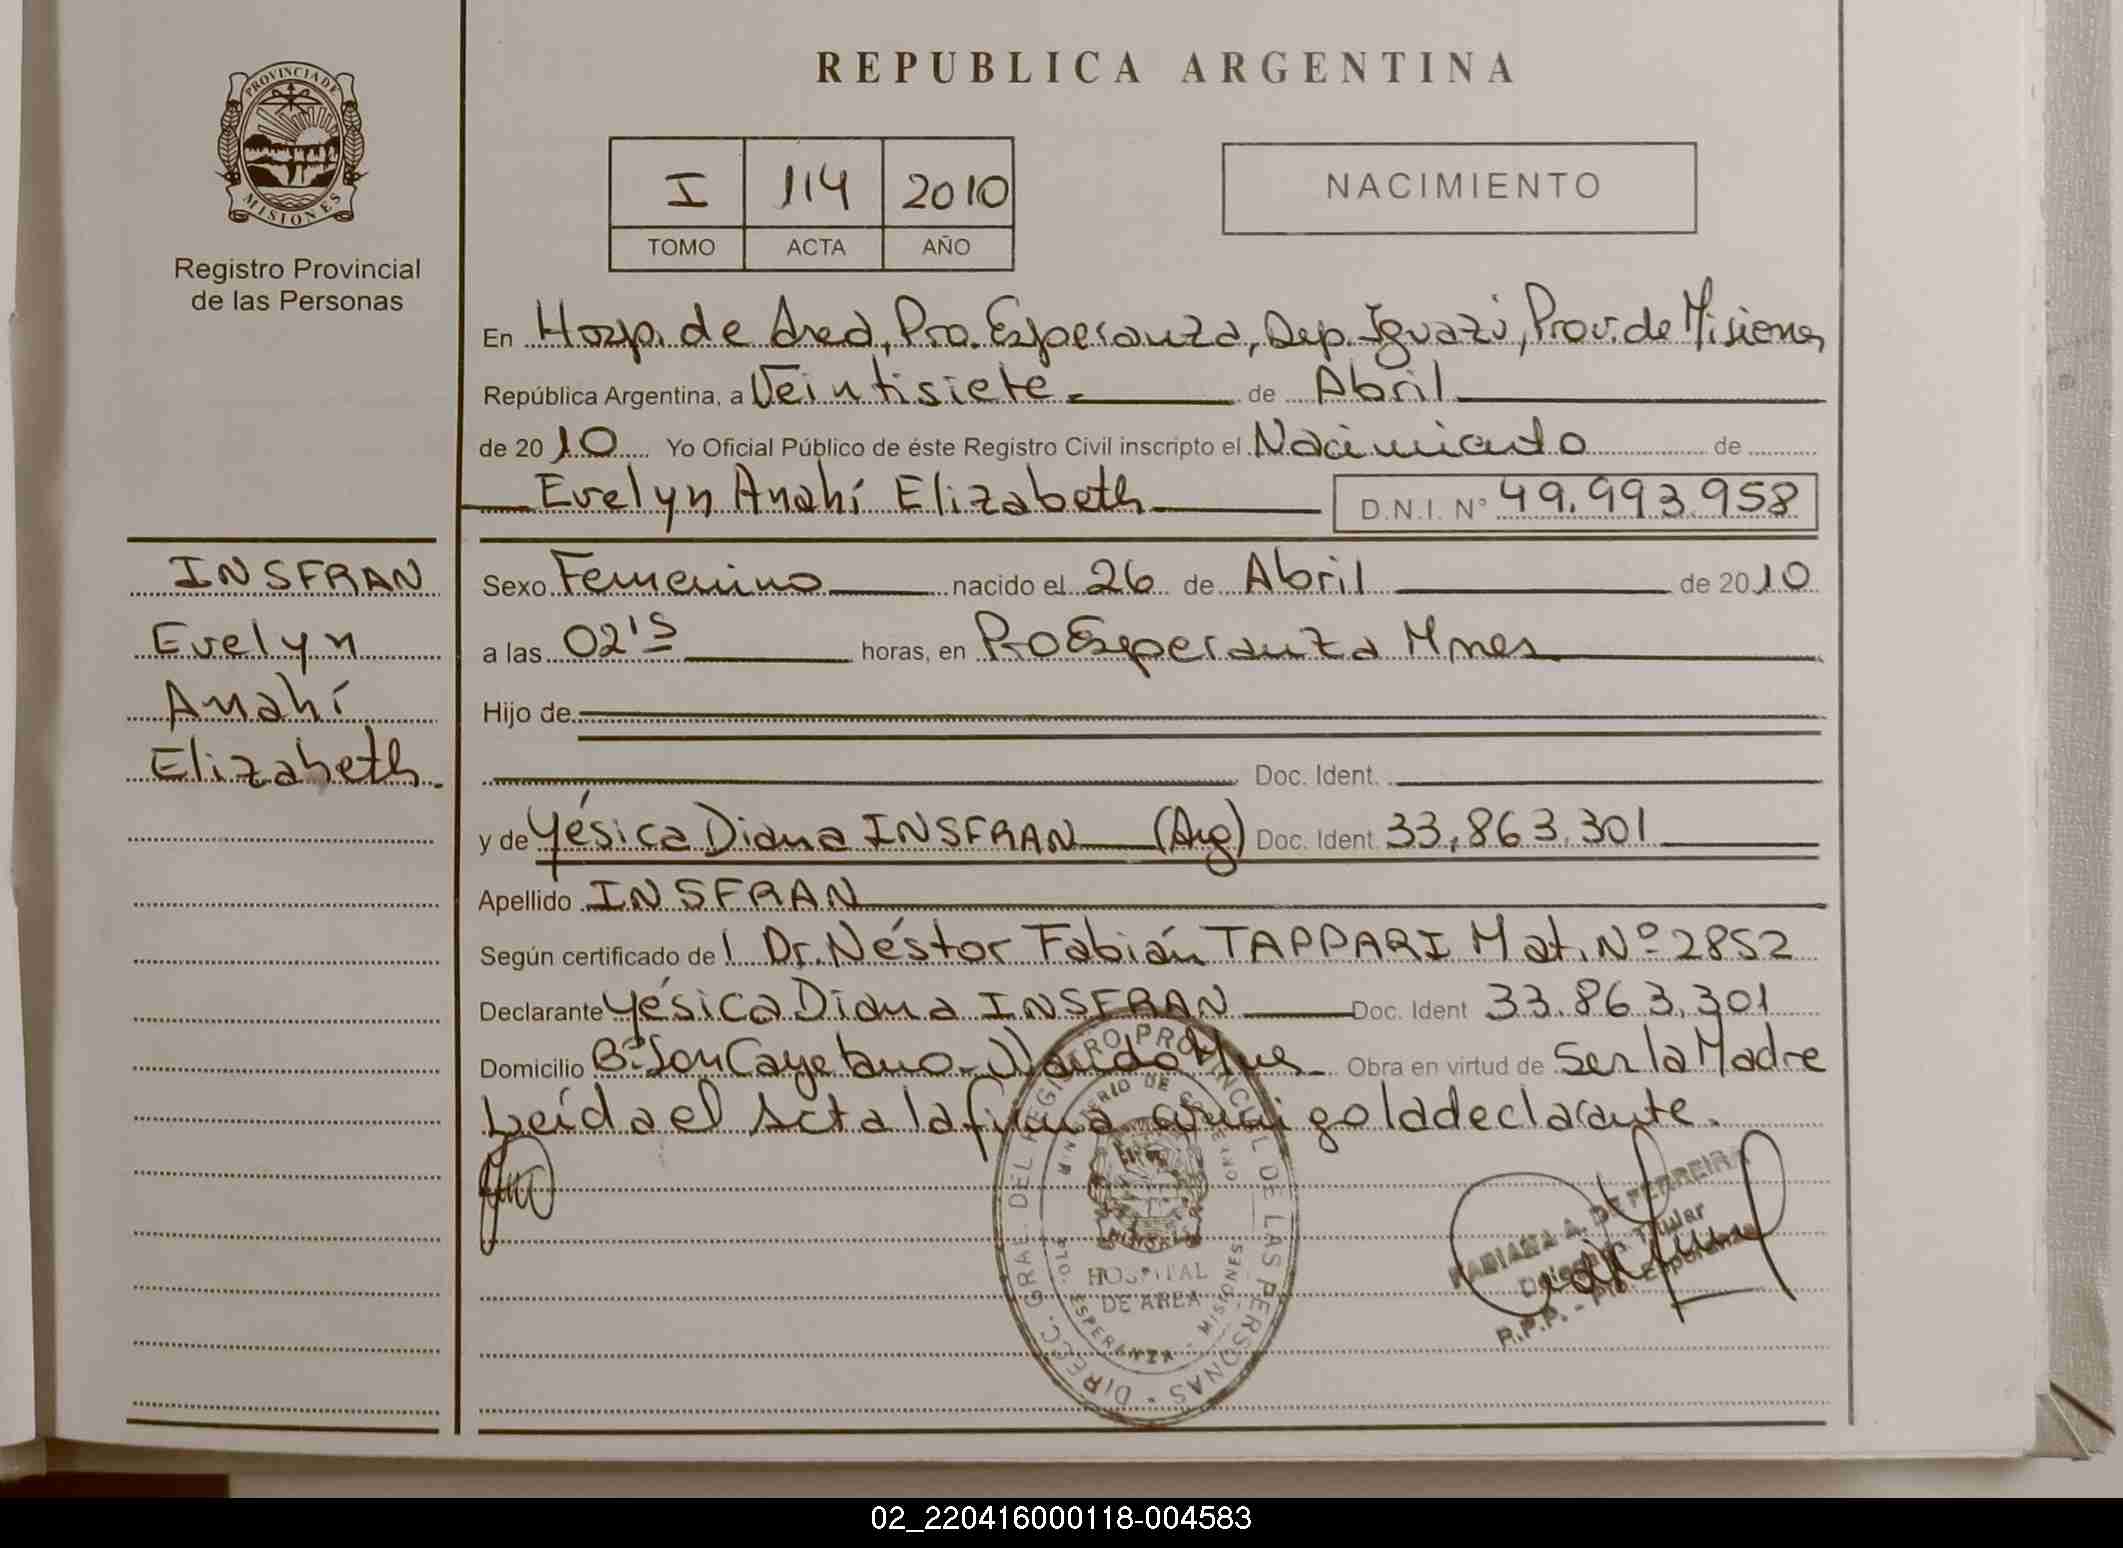 REPUBLICA ARGENTINA
PROVINCIA DE MISIONES
Registro Provincial
de las Personas
I 114 2010
TOMO ACTA AÑO
NACIMIENTO
En Hosp. de Area, Pto. Esperanza, Dep. Iguazú, Prov. de Misiones
República Argentina, a Veintisiete.- de Abril
de 2010 Yo Oficial Público de éste Registro Civil inscripto el Nacimiento de
Evelyn Anahí Elizabeth D.N.I. N° 49.993.958
INSFRAN
Evelyn
Anahí
Elizabeth.
Sexo Femenino nacido el 26 de Abril de 2010
a las 02'15 horas, en Pto Esperanza Mnes
Hijo de
Doc. Ident.
y de Yésica Diana INSFRAN (Arg) Doc. Ident. 33.863.301
Apellido INSFRAN
Según certificado de l Dr. Néstor Fabián TAPPARI Mat. Nº 2852
Declarante Yésica Diana INSFRAN Doc. Ident 33.863.301
Domicilio Bº San Cayetano - Wanda Mnes Obra en virtud de Ser la Madre
Leída el Acta la firma conmigo la declarante.
DIRECC. GRAL. DEL REGISTRO PROVINCIAL DE LAS PERSONAS
MINISTERIO DE GOBIERNO
HOSPITAL
DE AREA
PTO. ESPERANZA - MISIONES
FABIANA A. DE FERREIRA
Titular
R.P.P. - Pto. Esperanza
02_220416000118-004583